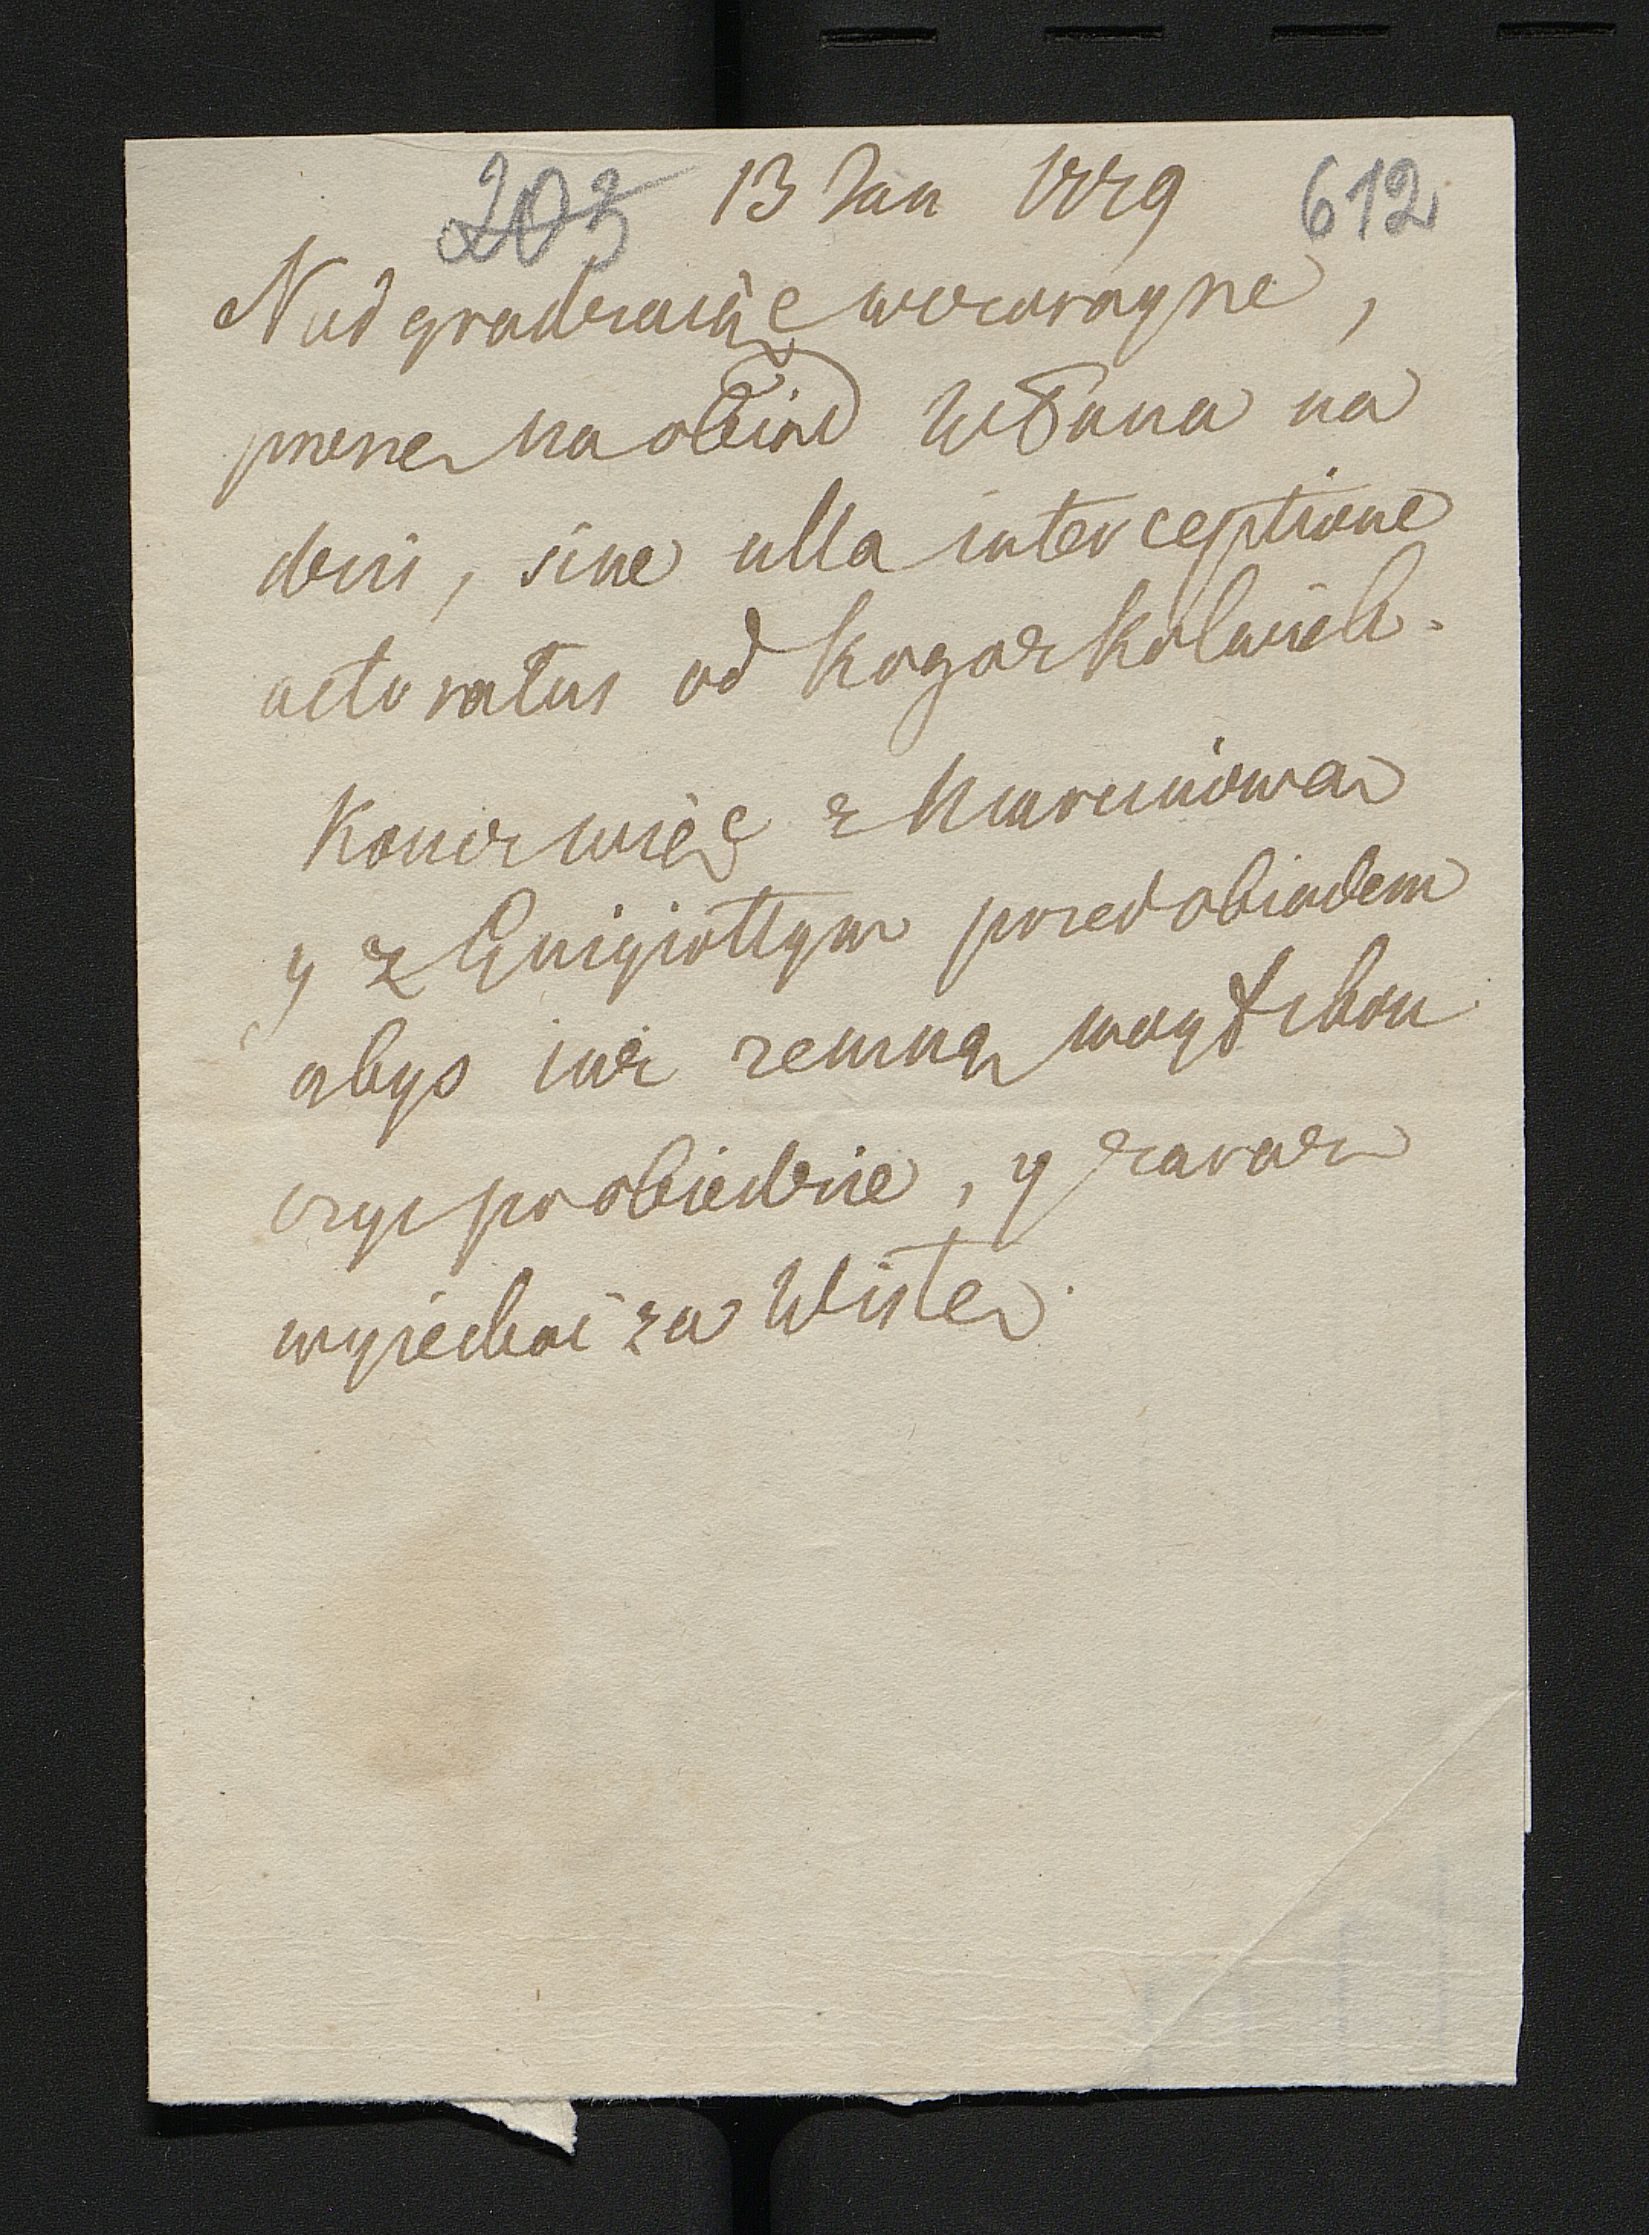 203 13 Jan 1779 612
Nadgradzaiąc wczoraysze,
prosze na obiad WPana na
dziś, sine ulla interceptione
actoratus od kogoz kolwiek.
Koncz więc z
y z Ghigiottym przed obiadem
abys iuz zemną mogł skon
czyc po obiedzie, y zaraz
wyiechać za Wisłę.